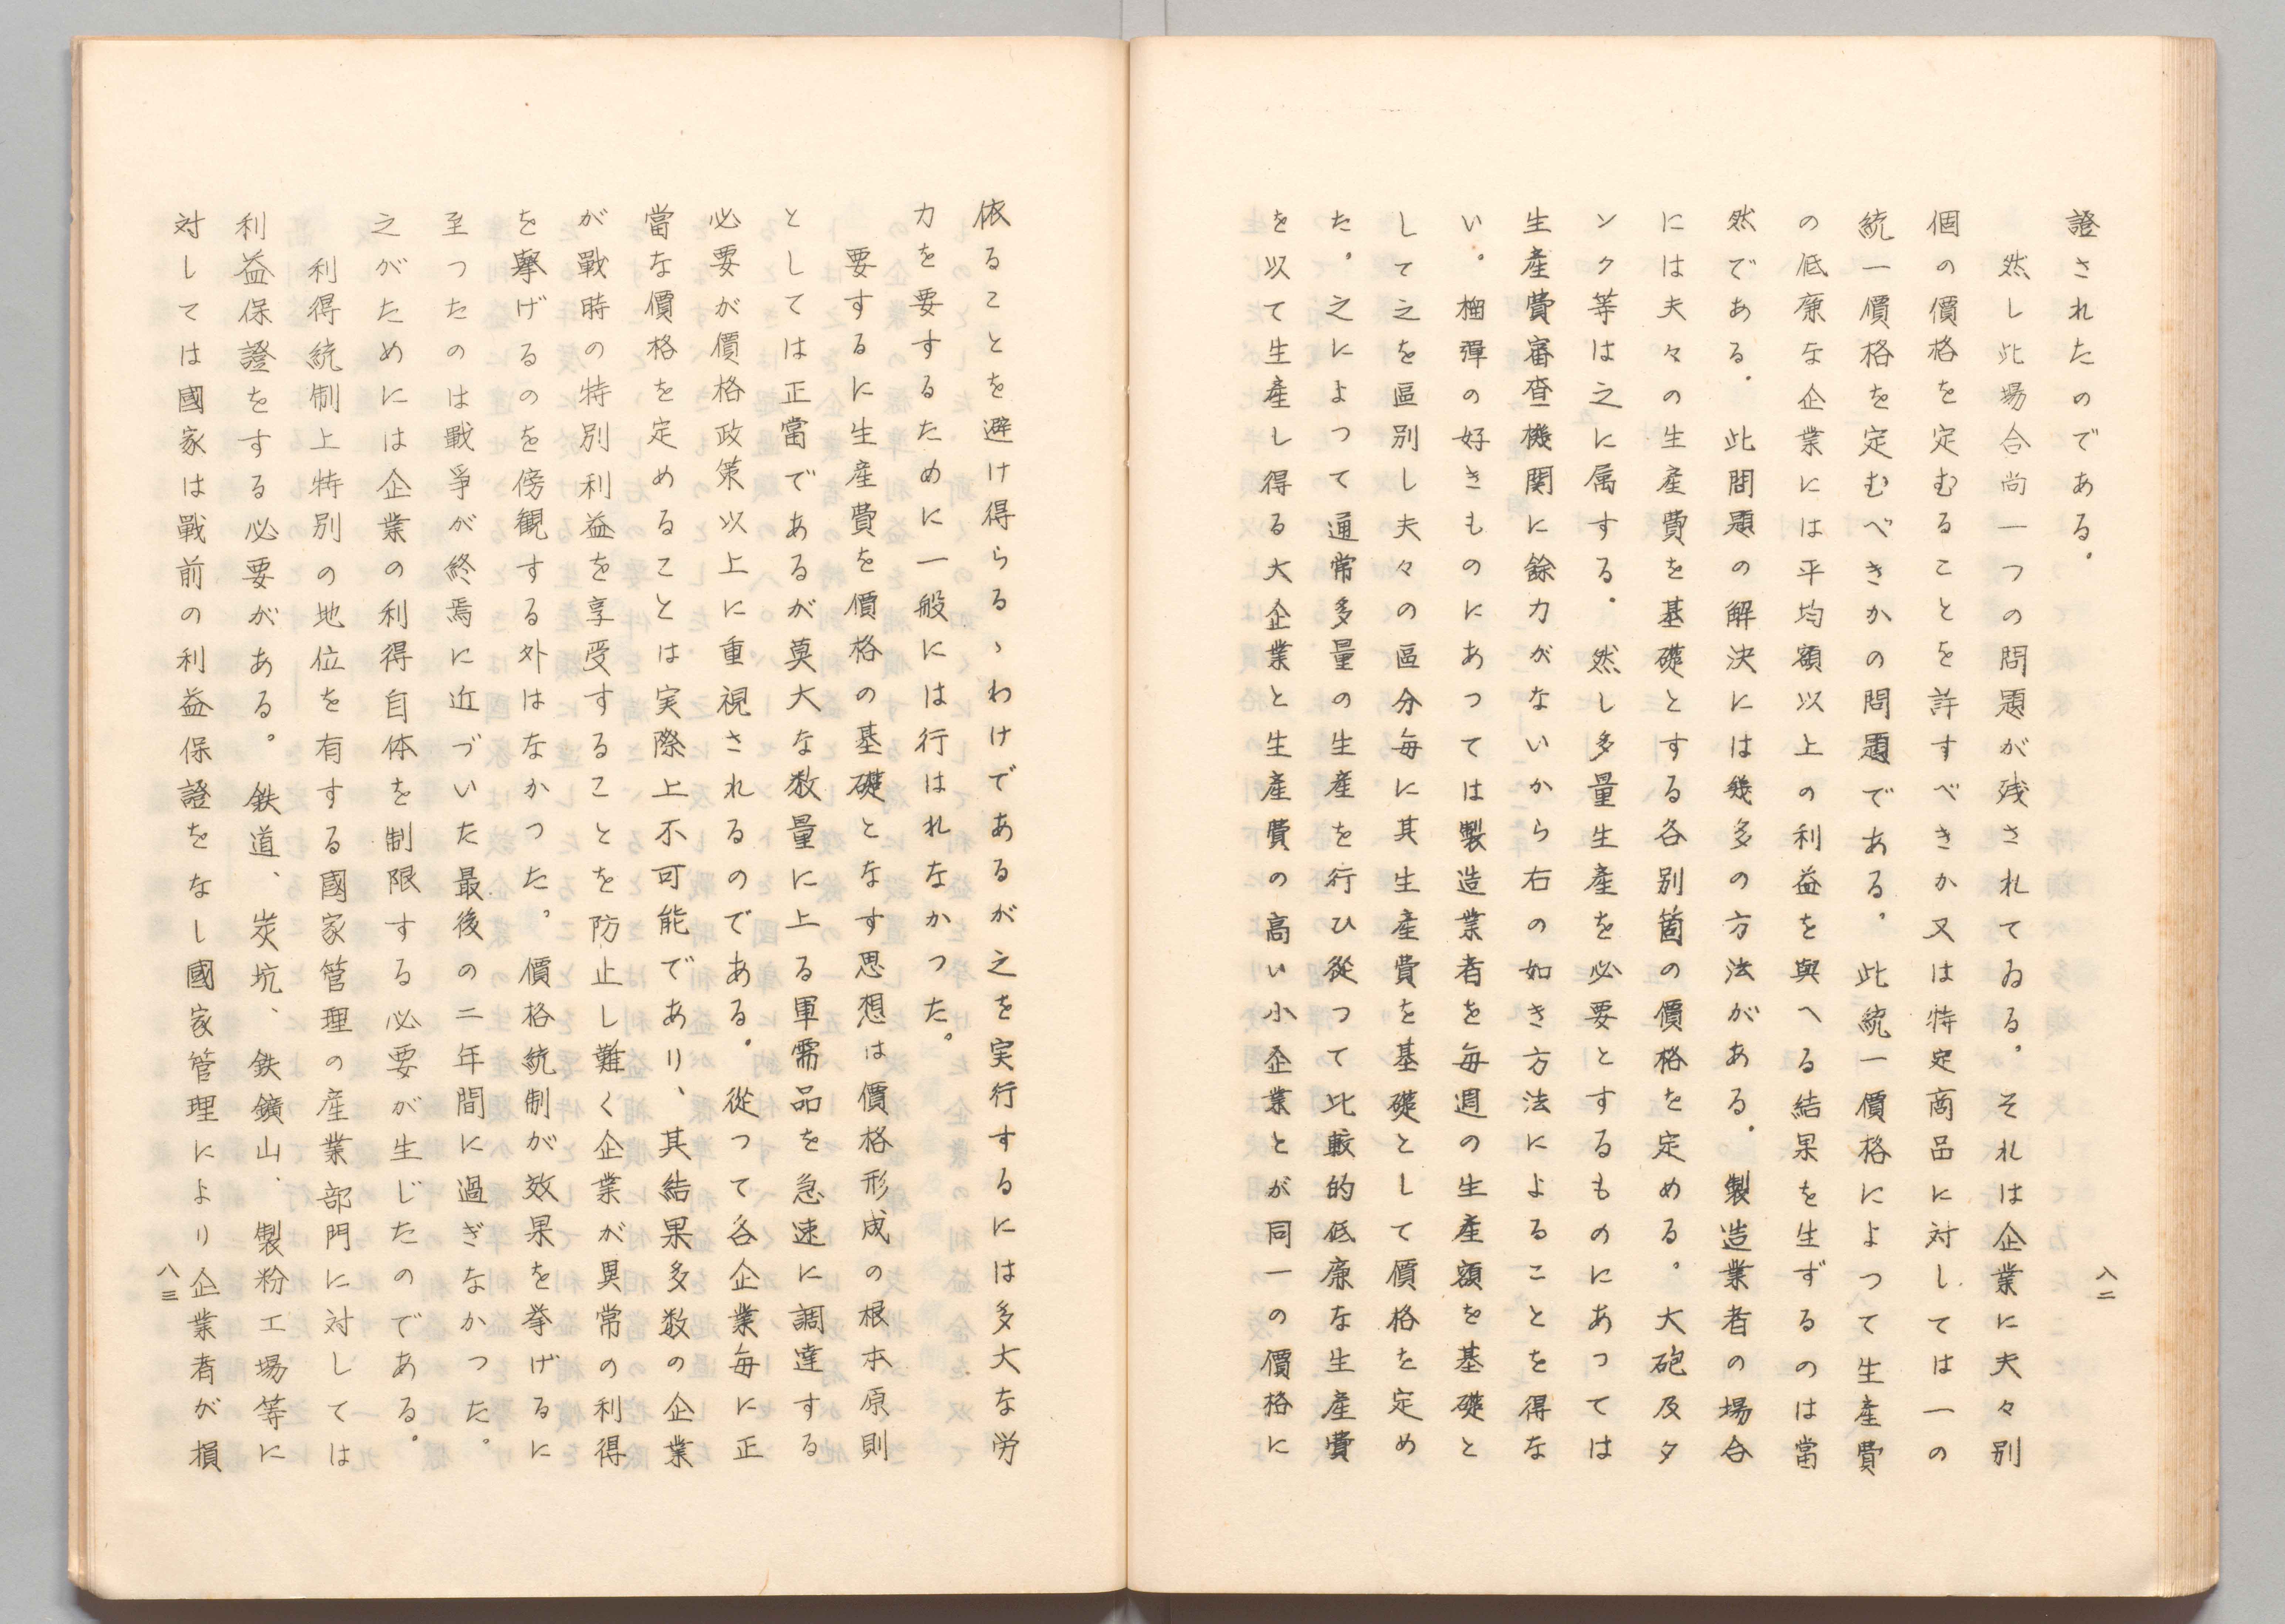 證されたのである。
然し此場合尚一つの問題が残されてゐる。それは企業に夫々別
個の價格を定むることを許すべきか又は特定商品に対しては一の
統一價格を定むべきかの問題である。此統一價格によつて生産費
の低廉な企業には平均額以上の利益を與へる結果を生ずるのは當
然である。此問題の解決には幾多の方法がある。製造業者の場合
には夫々の生産費を基礎とする各別箇の價格を定める。大砲及タ
ンク等は之に属する。然し多量生産を必要とするものにあつては
生産費審査機関に餘力がないから右の如き方法によることを得な
い。榴彈の好きものにあつては製造業者を毎週の生産額を基礎と
して之を區別し夫々の區分毎に其生産費を基礎として價格を定め
た。之によつて通常多量の生産を行ひ從つて比較的低廉な生産費
を以て生産し得る大企業と生産費の高い小企業とが同一の價格に
八二
依ることを避け得らるゝわけであるが之を実行するには多大な労
力を要するために一般には行はれなかつた。
要するに生産費を價格の基礎となす思想は價格形成の根本原則
としては正當であるが莫大な数量に上る軍需品を急速に調達する
必要が價格政策以上に重視されるのである。從つて各企業毎に正
當な價格を定めることは実際上不可能であり、其結果多数の企業
が戰時の特別利益を享受することを防止し難く企業が異常の利得
を擧げるのを傍観する外はなかつた。價格統制が效果を挙げるに
至つたのは戰爭が終焉に近づいた最後の二年間に過ぎなかつた。
之がためには企業の利得自体を制限する必要が生じたのである。
利得統制上特別の地位を有する國家管理の産業部門に対しては
利益保證をする必要がある。鉄道、炭坑、鉄鑛山、製粉工場等に
対しては國家は戰前の利益保證をなし國家管理により企業者が損
八三